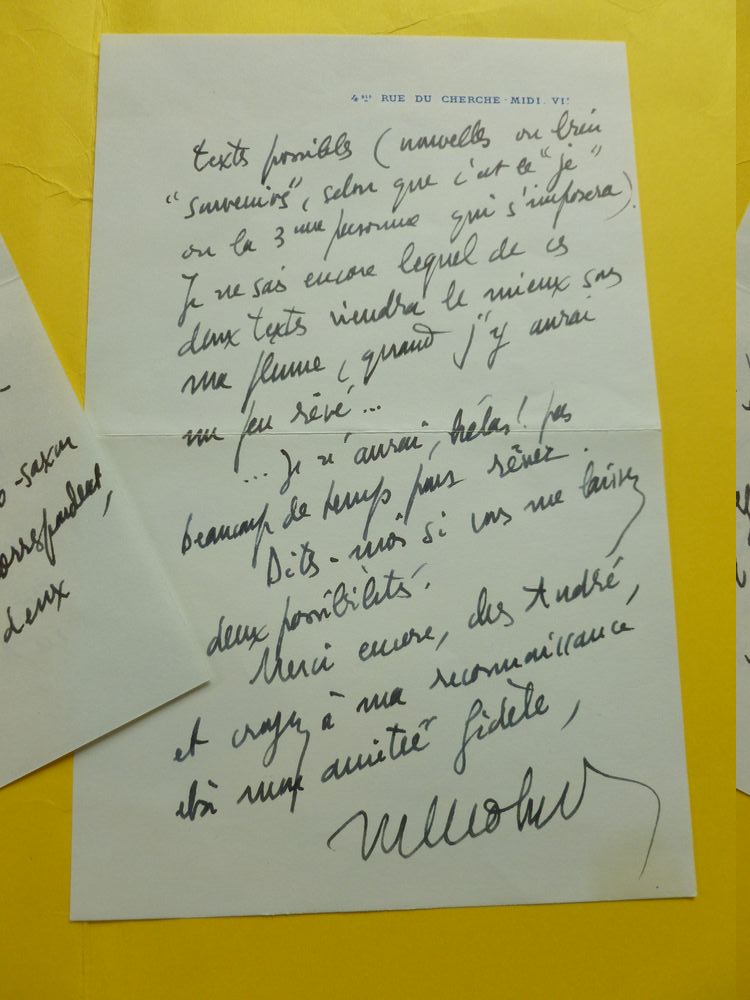 4bis RUE DU CHERCHE-MIDI. VIe
textes possibles (nouvelles ou bien
"souvenirs", selon que c'est le "je"
ou la 3ème personne qui s'imposera).
Je ne sais encore lequel de ces
deux textes viendra le mieux sous
ma plume, quand j'y aurai
un peu rêvé...
... Je n'aurai, hélas! pas
beaucoup de temps pour rêver.
Dites-moi si vous me laissez
deux possibilités.
Merci encore, cher André,
et croyez à ma reconnaissance
et à mon amitié fidèle,
-saxon
correspondent,
deux